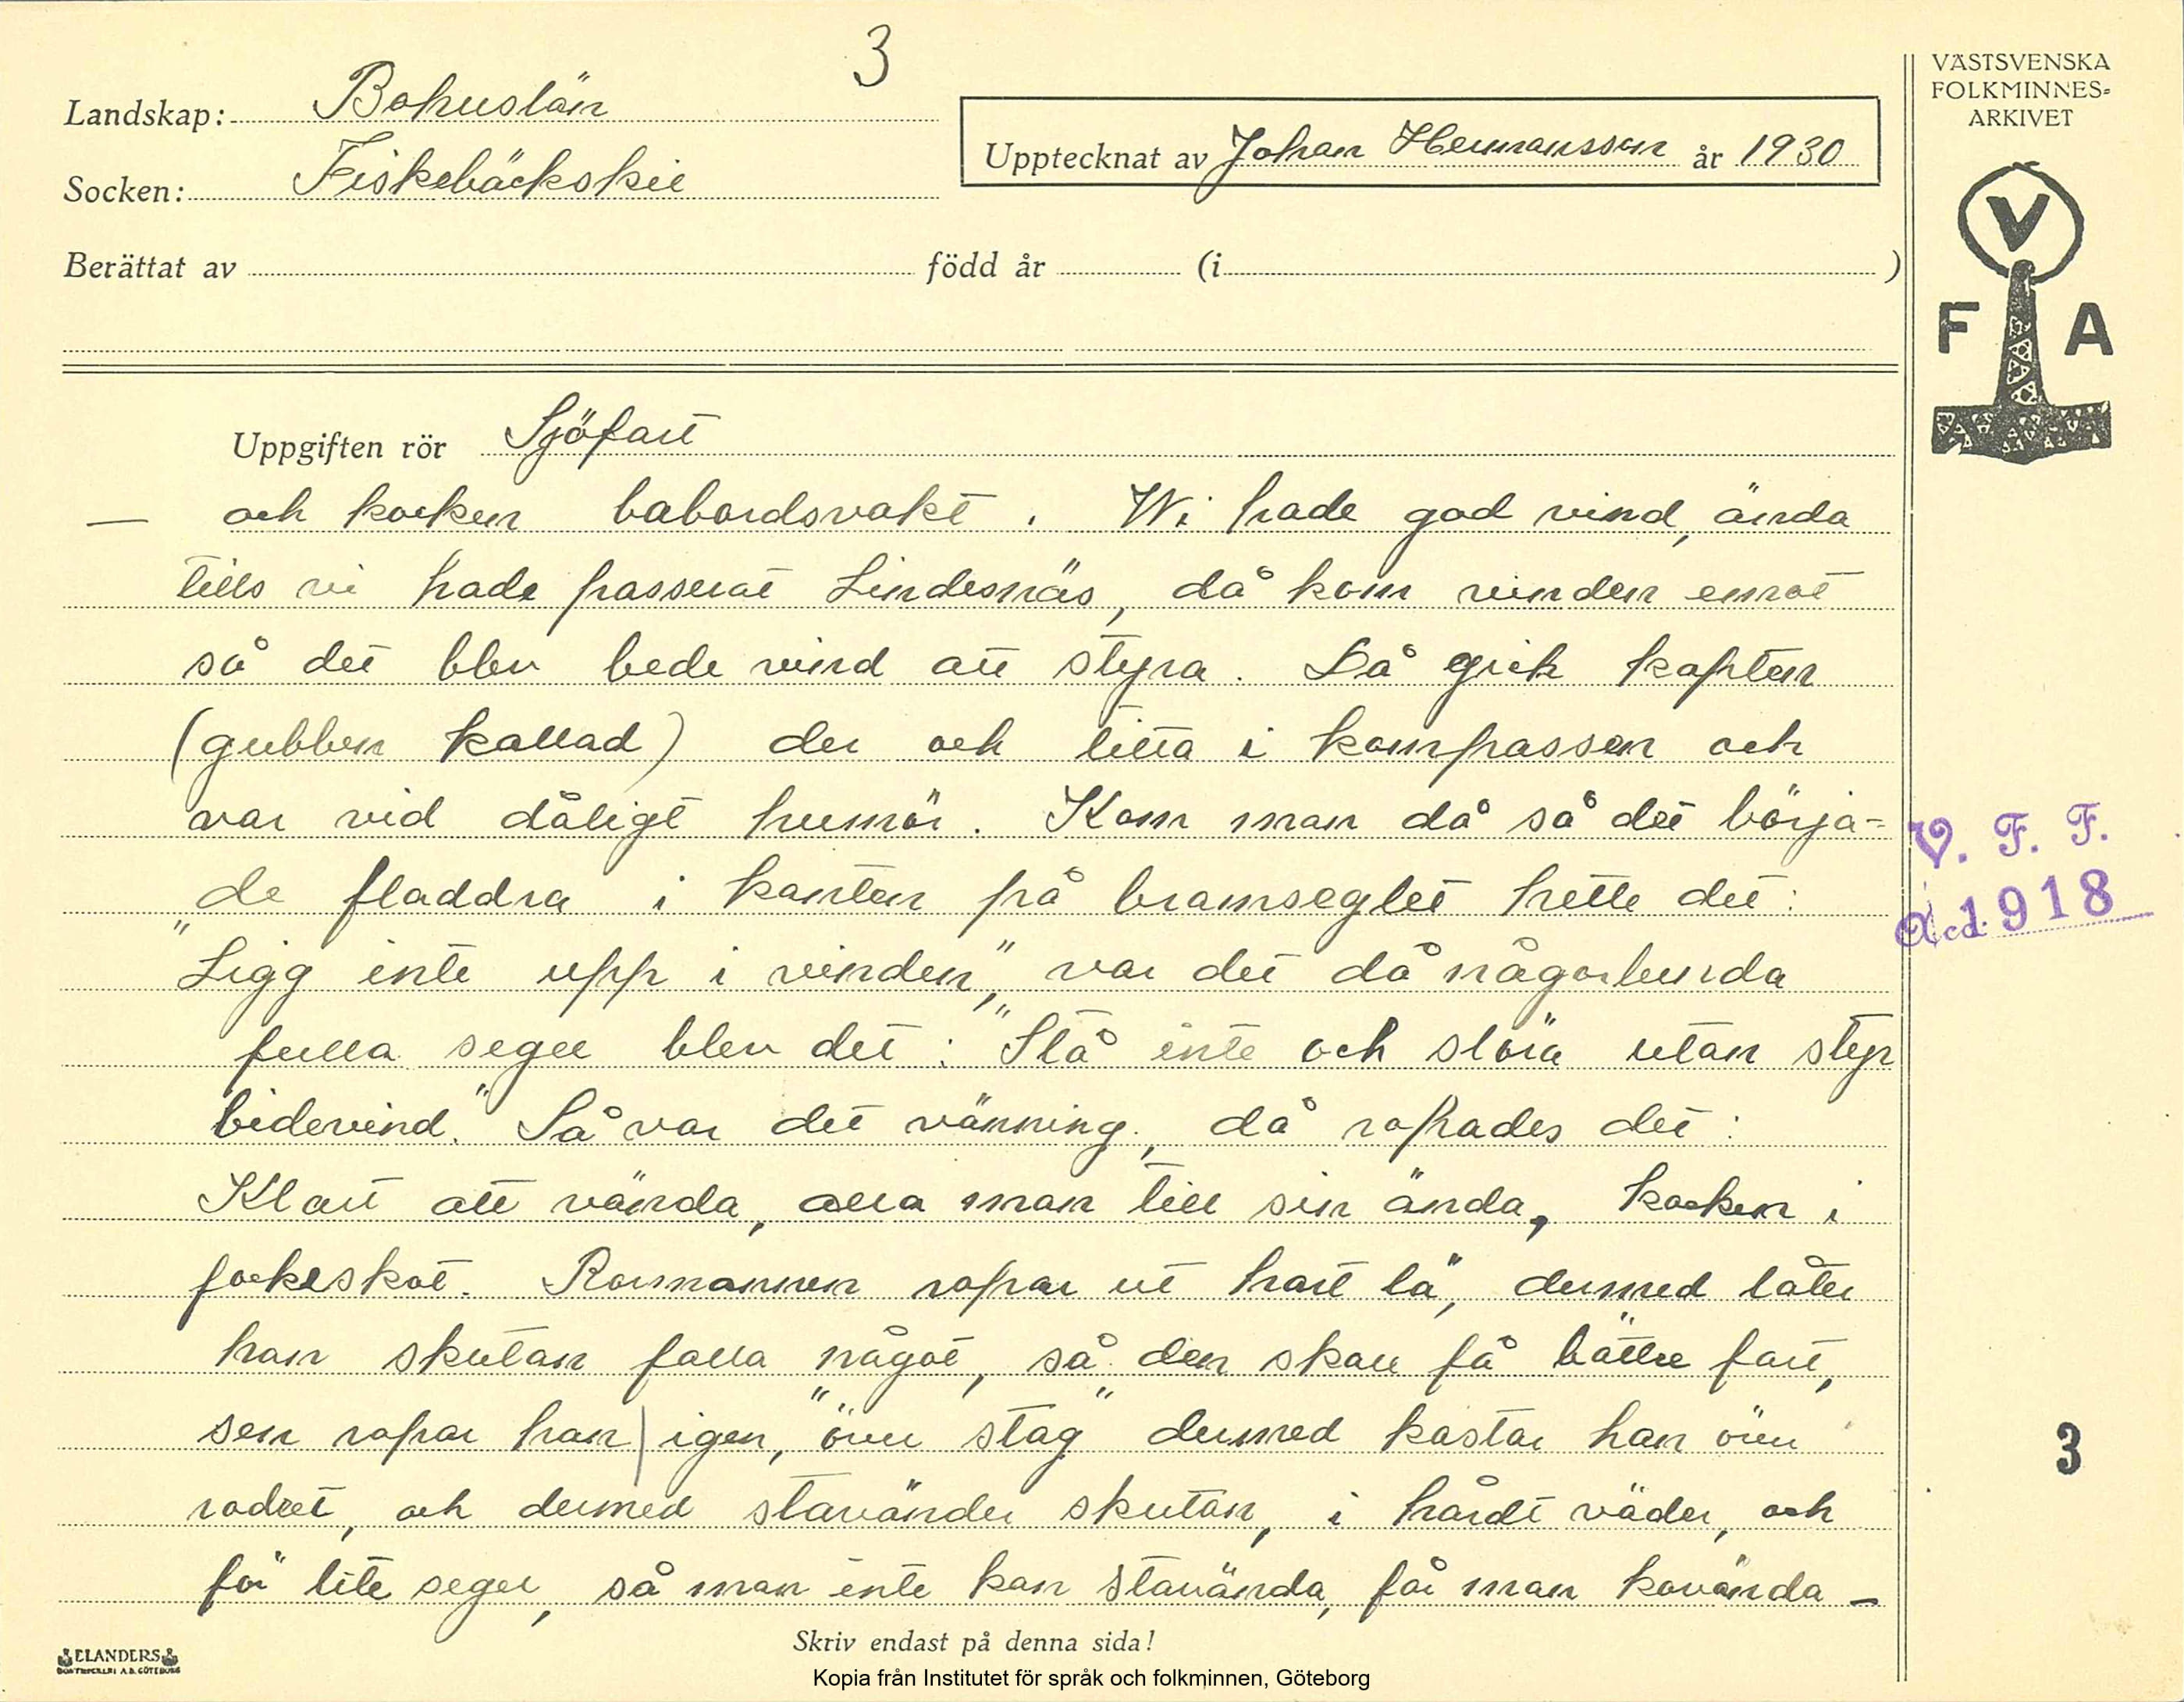 3
VÄSTSVENSKA
FOLKMINNES=
ARKIVET
Landskap: Bohuslän
Upptecknat av Johan Hermansson år 1930
Socken: Fiskebäckskil
Berättat av född år (i )
V
F A
Uppgiften rör Sjöfart
— och kocken babordsvakt. Wi hade god vind, ända
tills vi hade passerat Lindesnäs, då kom vinden emot
så det blev bede vind att styra. Då gick kapten
(gubben kallad) der och titta i kompassen och
var vid dåligt humör. Kom man då så det börja=
de fladdra i kanten på bramseglet hette det:
"Ligg inte upp i vinden", var det då någorlunda
fulla segel blev det: "Stå inte och slöra utan styr
bidevind." Så var det vänning, då ropades det:
Klart att vända, alla man till sin ända, kocken i
fockeskot. Rormannen ropar ut hart lä", dermed låter
han skutan falla något, så den skall få bättre fart,
sen ropar han | igen, "över stag" dermed kastar han över
rodret, och dermed stavänder skutan, i hårdt väder, och
för lite segel, så man inte kan stavända, får man kovända —
V. F. F.
Acd. 1918
3
Skriv endast på denna sida!
ELANDERS
BOKTRYCKERI A.B. GÖTEBORG
Kopia från Institutet för språk och folkminnen, Göteborg